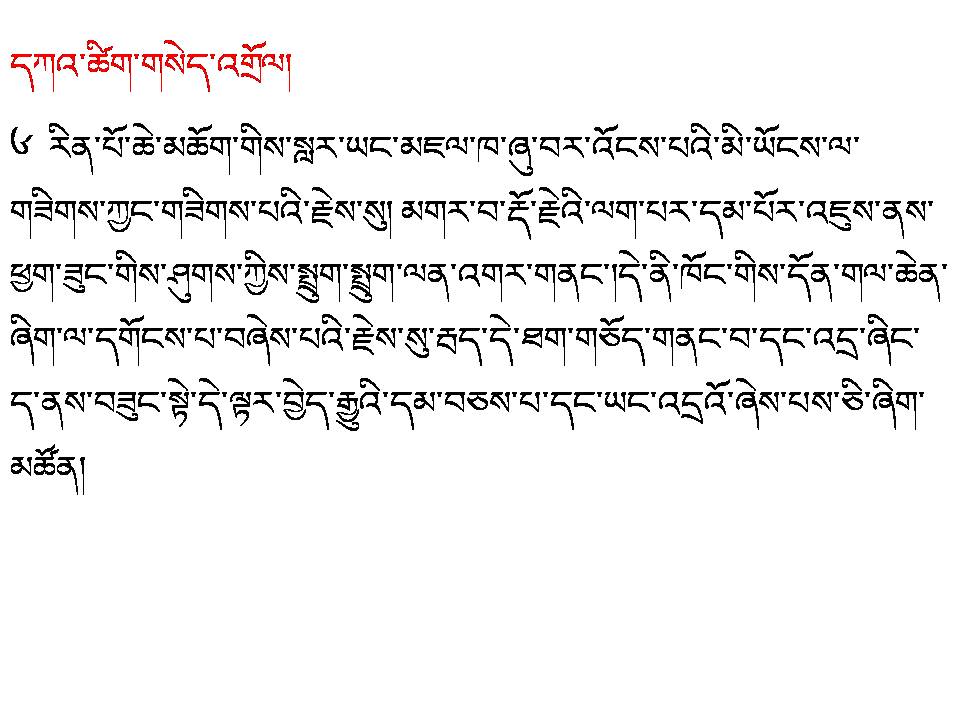 དཀའ་ཚིག་གསེད་འགྲོལ།
༦ རིན་པོ་ཆེ་མཆོག་གིས་སླར་ཡང་མཇལ་ཁ་ཞུ་བར་འོངས་པའི་མི་ཡོངས་ལ་
གཟིགས་ཀྱང་གཟིགས་པའི་རྗེས་སུ། མགར་བ་རྡོ་རྗེའི་ལག་པར་དམ་པོར་འཇུས་ནས་
ཕྱག་ཟུང་གིས་ཤུགས་ཀྱིས་སྤྲུག་སྤྲུག་ལན་འགར་གནང་།དེ་ནི་ཁོང་གིས་དོན་གལ་ཆེན་
ཞིག་ལ་དགོངས་པ་བཞེས་པའི་རྗེས་སུ་རྦད་དེ་ཐག་གཅོད་གནང་བ་དང་འདྲ་ཞིང་
ད་ནས་བཟུང་སྟེ་དེ་ལྟར་བྱེད་རྒྱུའི་དམ་བཅས་པ་དང་ཡང་འདྲའོ་ཞེས་པས་ཅི་ཞིག་
མཚོན།